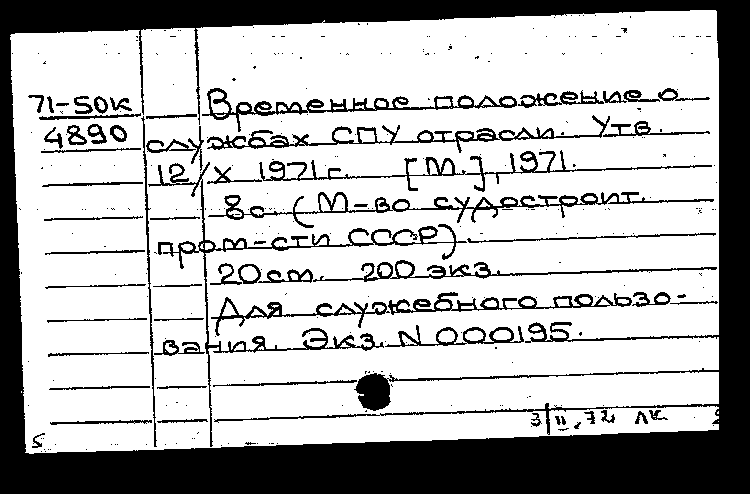 71-50к
4890
Временное положение о
службах СПУ отрасли. Утв.
12/X 1971г. [М.], 1971.
8с. (М-во судостроит.
пром-сти СССР).
20см. 200 экз.
Для служебного пользо-
вания. Экз. N 000195.
3/II.72 ЛК
5